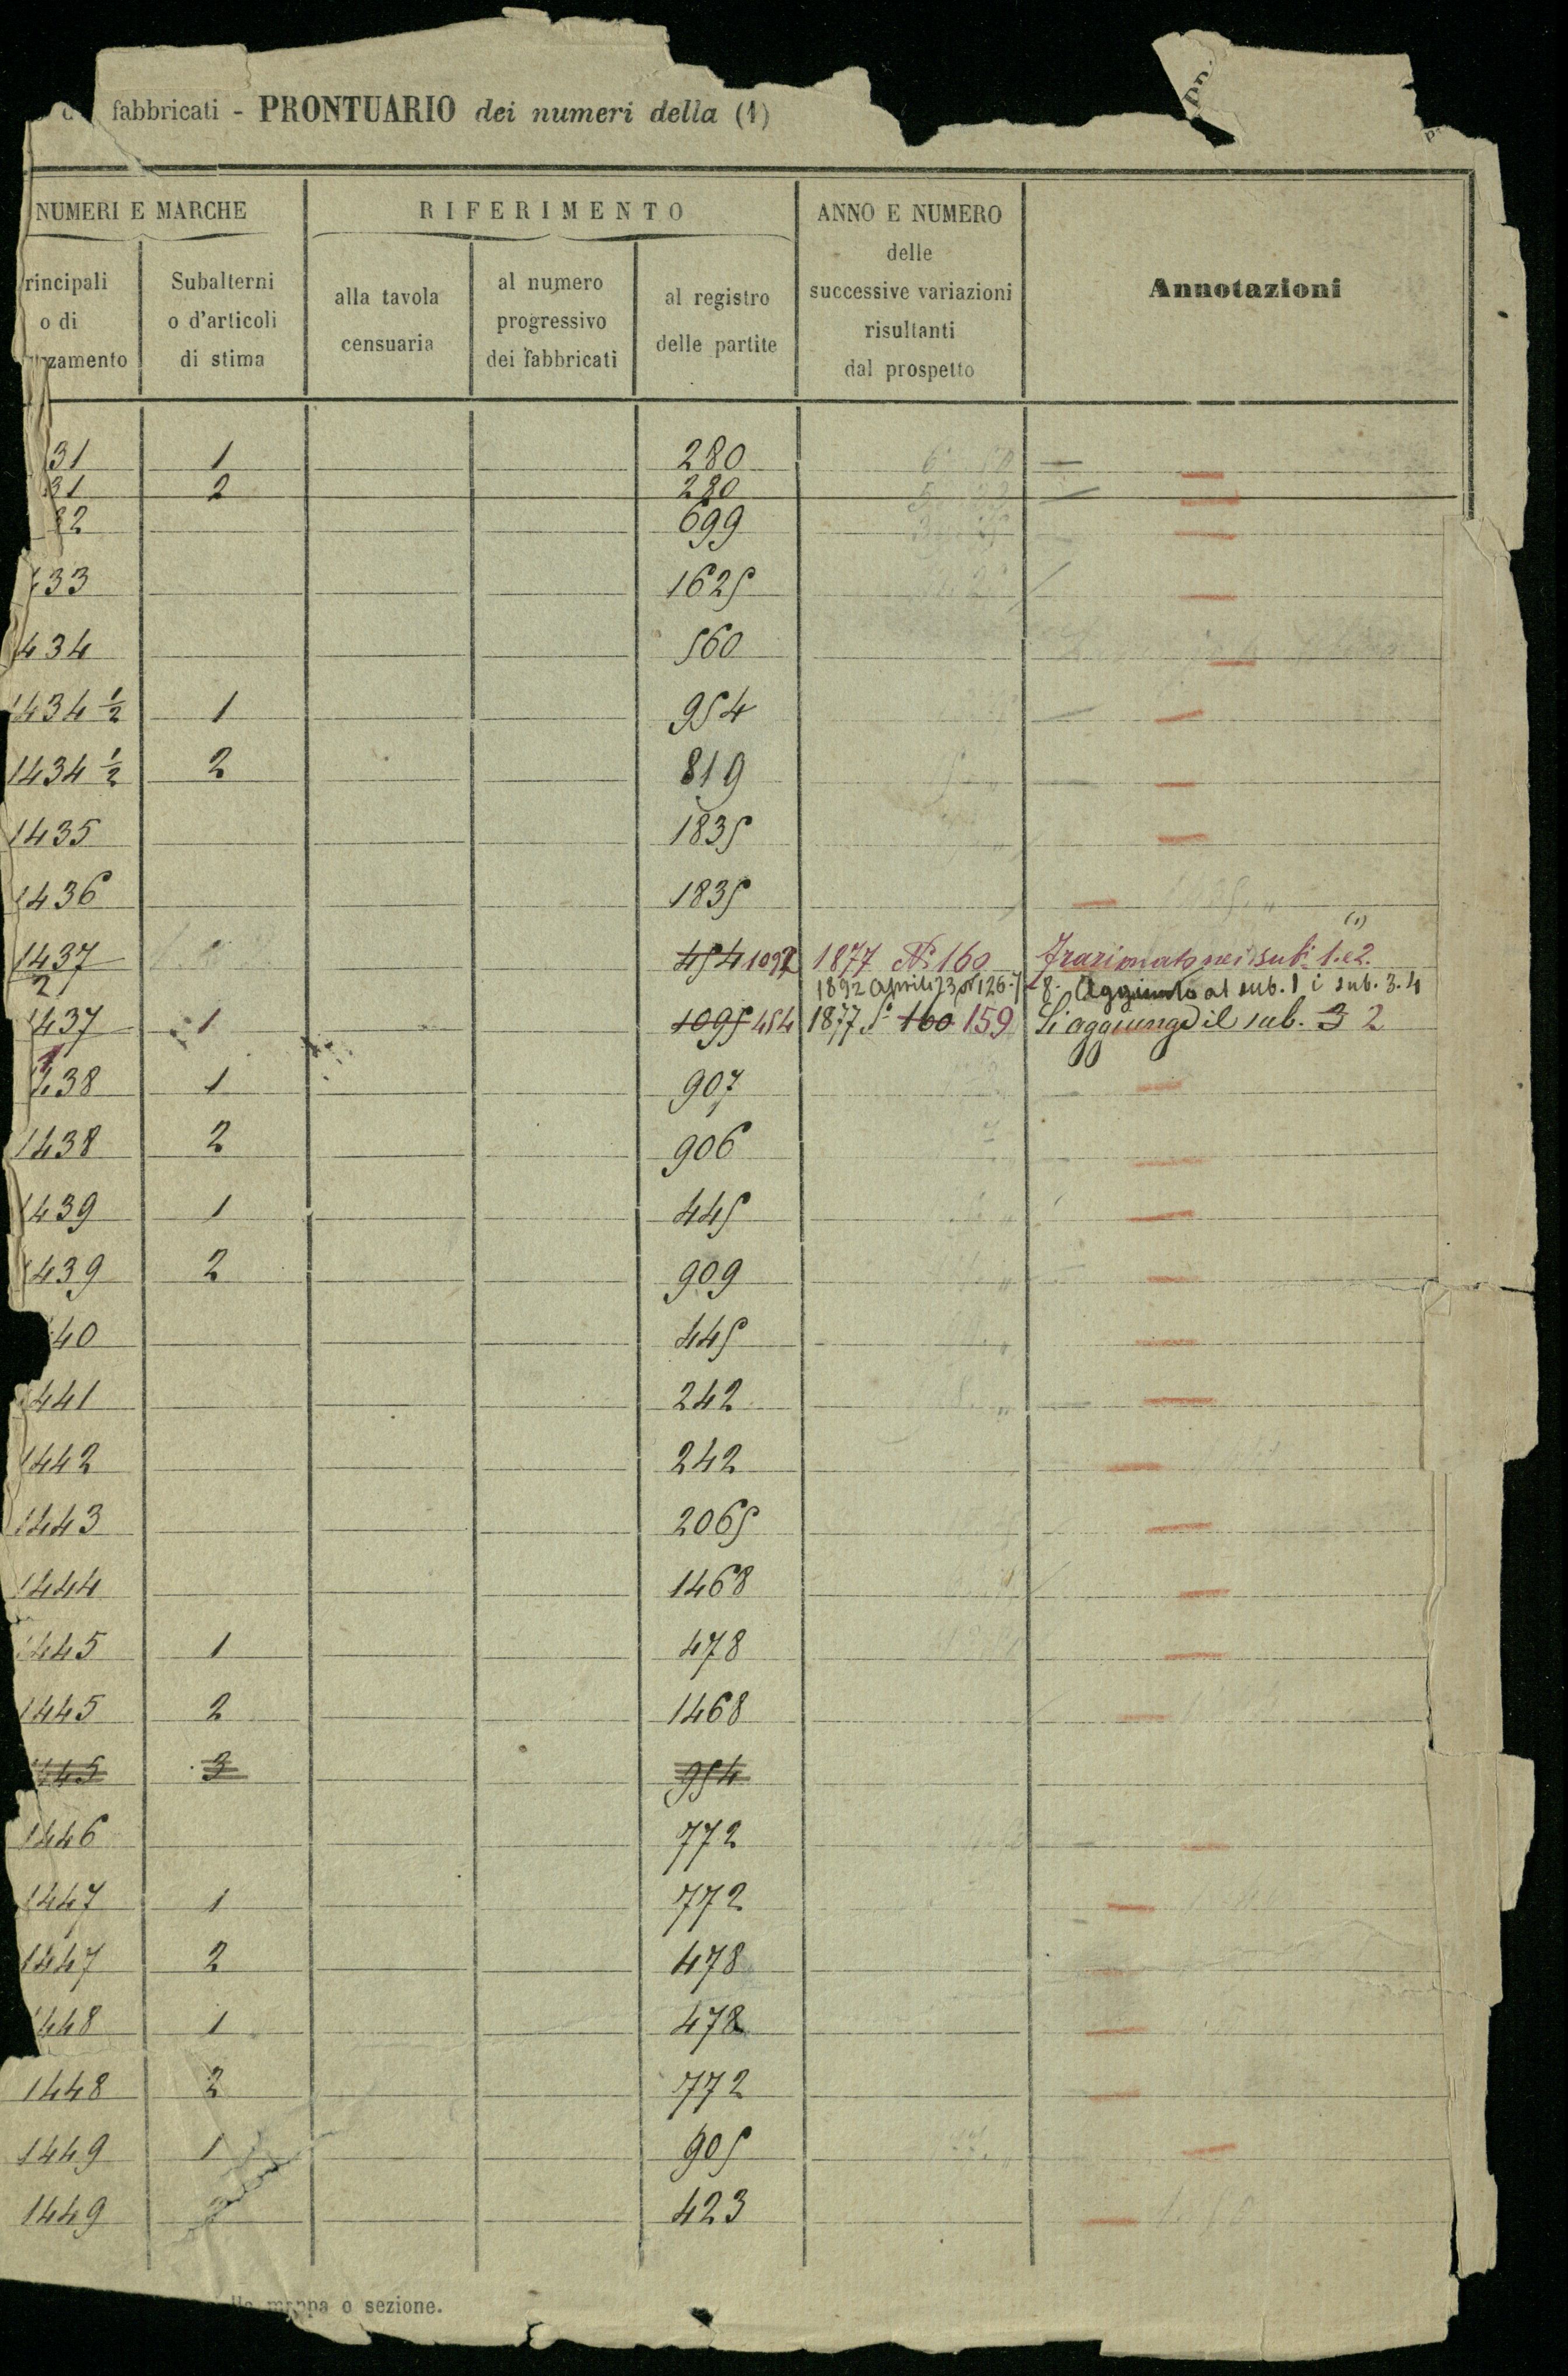 fabbricati - PRONTUARIO dei numeri della (1)
NUMERI E MARCHE RIFERIMENTO ANNO E NUMERO delle successive variazioni risultanti dal prospetto Annotazioni
rincipali o di zamento Subalterni o d'articoli di stima alla tavola censuaria al numero progressivo dei fabbricati al registro delle partite
31 1 280
31 2 280
32 699
433 1625
434 560
1434 ½ 1 954
1434 ½ 2 819
1435 1835
1436 1835
(1)
1437/2 454 1877 N° 160 Frazionato nei sub. 1. e 2.
1892 Aprile 8. Aggiunto al sub. 1 i sub. 3. 4
1437 1 1095 454 1877 160 159 Si aggiunge il sub. 3 2
1
438 1 907
1438 2 906
1439 1 445
1439 2 909
40 445
441 242
1442 242
1443 2065
1444 1468
1445 1 478
1445 2 1468
445 3 954
1446 772
1447 1 772
1447 2 478
448 1 478
1448 2 772
1449 1 905
1449 2 423
mappa o sezione.